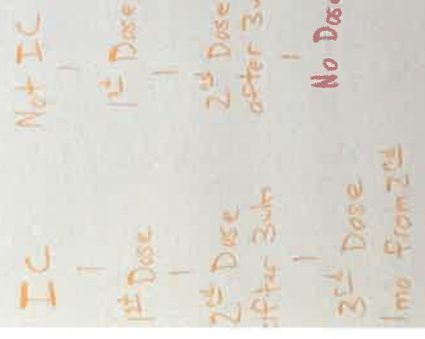 IC
1st Dose
2nd Dose
after 3wks
3rd Dose
1mo from 2nd
Not IC
1st Dose
2nd Dose
after
No Dose